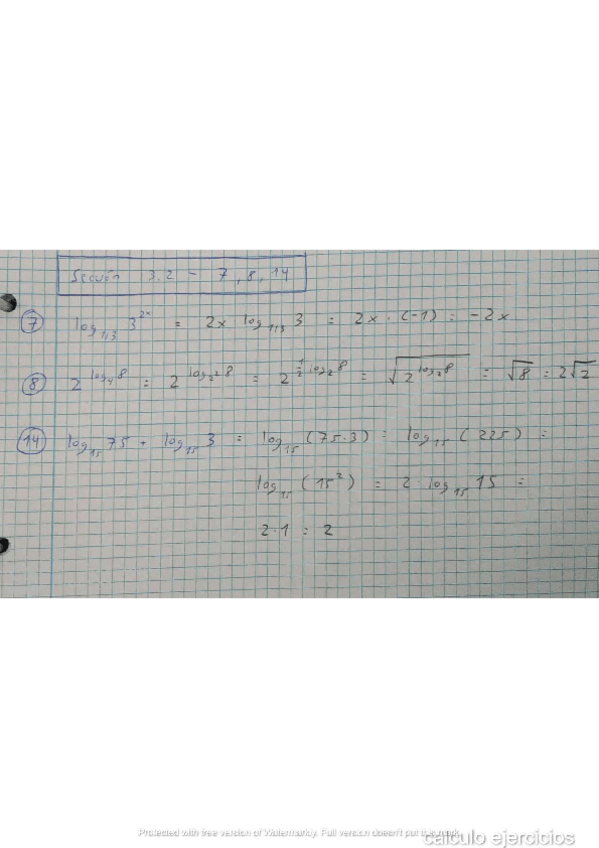 Sección 3.2 - 7, 8, 14
7 log_{1/3} 3^{2x} = 2x log_{1/3} 3 = 2x · (-1) = -2x
8 2^{log_4 8} = 2^{log_{2^2} 8} = 2^{1/2 log_2 8} = √(2^{log_2 8}) = √8 = 2√2
14 log_{15} 75 + log_{15} 3 = log_{15} (75·3) = log_{15} (225) =
log_{15} (15^2) = 2 · log_{15} 15 =
2·1 = 2
Protected with free version of Watermarkly. Full version doesn't put this mark.
calculo ejercicios